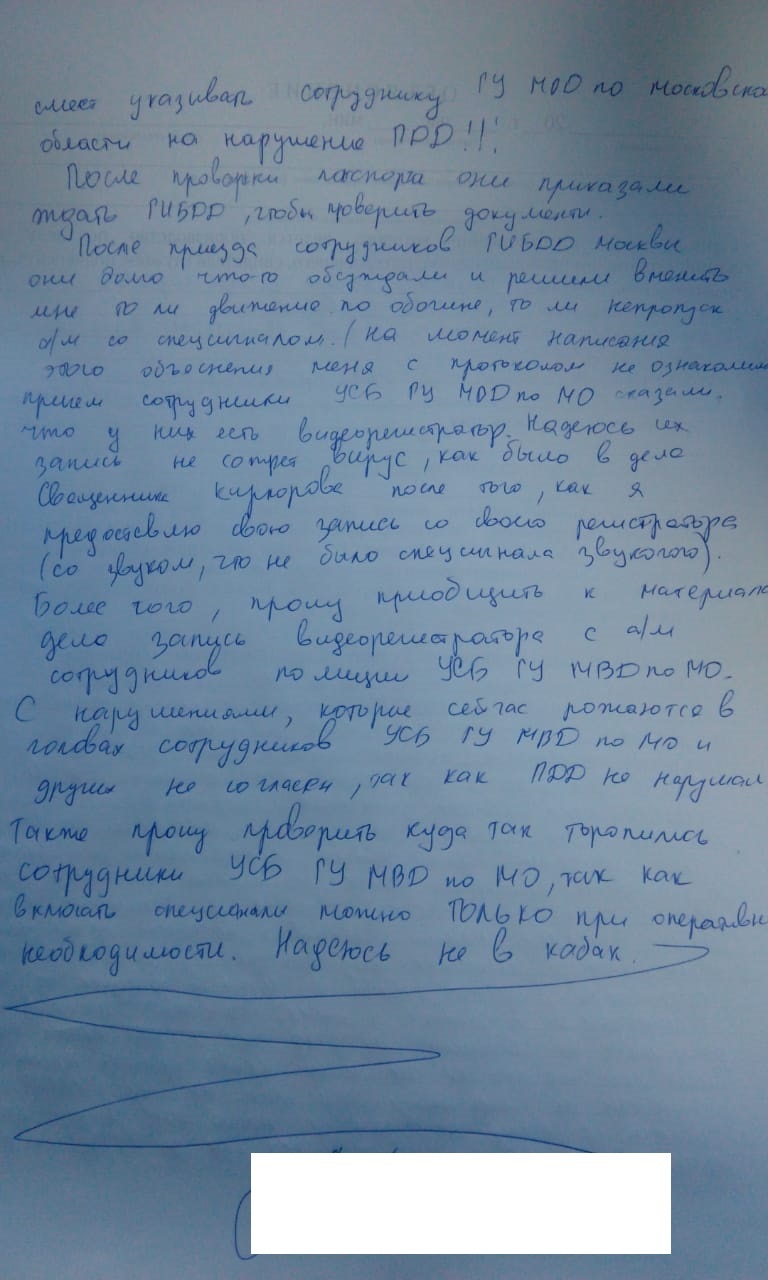 смеет указивать сотруднику ГУ МВD по московско
области на нарушение ПDD!!!
После проверки паспорта они приказали
ждать ГИБDD, чтобы проверить документы.
После приезда сотрудников ГИБDD Москвы
они долго что-то обсуждали и решили вменить
мне то ли движение по обочине, то ли непропуск
а/м со спецсигналом. (на момент написания
этого объеснения меня с протоколом не ознакомили
причем сотрудники УСБ ГУ МВD по МО сказали,
что у них есть видеорегистратор. Надеюсь их
запись не сотрет вирус, как было в деле
Священника Киркорова после того, как я
предоставлю свою запись со своего регистратора
(со звуком, что не было спецсигнала звукогого).
Более того, прошу приобщить к материала
дела запись видеорегистратора с а/м
сотрудников полиции УСБ ГУ МВD по МО.
С нарушениями, которые сейчас рожаются в
головах сотрудников УСБ ГУ МВD по МО и
других не согласен, так как ПDD не нарушал
Также прошу проверить куда так торопились
сотрудники УСБ ГУ МВD по МО, так как
включать спецсигналы можно ТОЛЬКО при оперативн
необходимости. Надеюсь не в кабак.